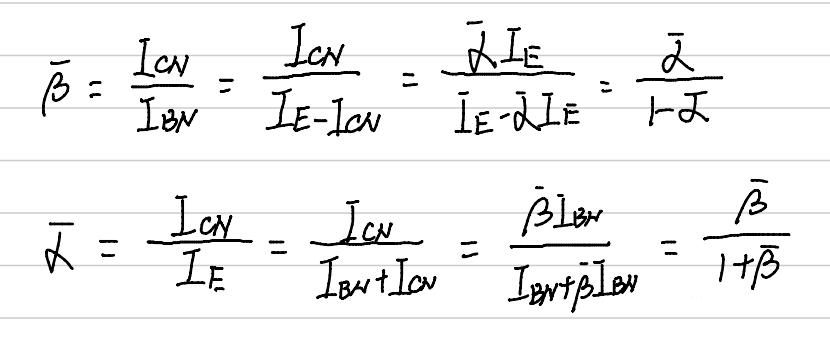 β̄ = I_CN / I_BN = I_CN / (I_E - I_CN) = ᾱ I_E / (I_E - ᾱ I_E) = ᾱ / (1 - ᾱ)
ᾱ = I_CN / I_E = I_CN / (I_BN + I_CN) = β̄ I_BN / (I_BN + β̄ I_BN) = β̄ / (1 + β̄)